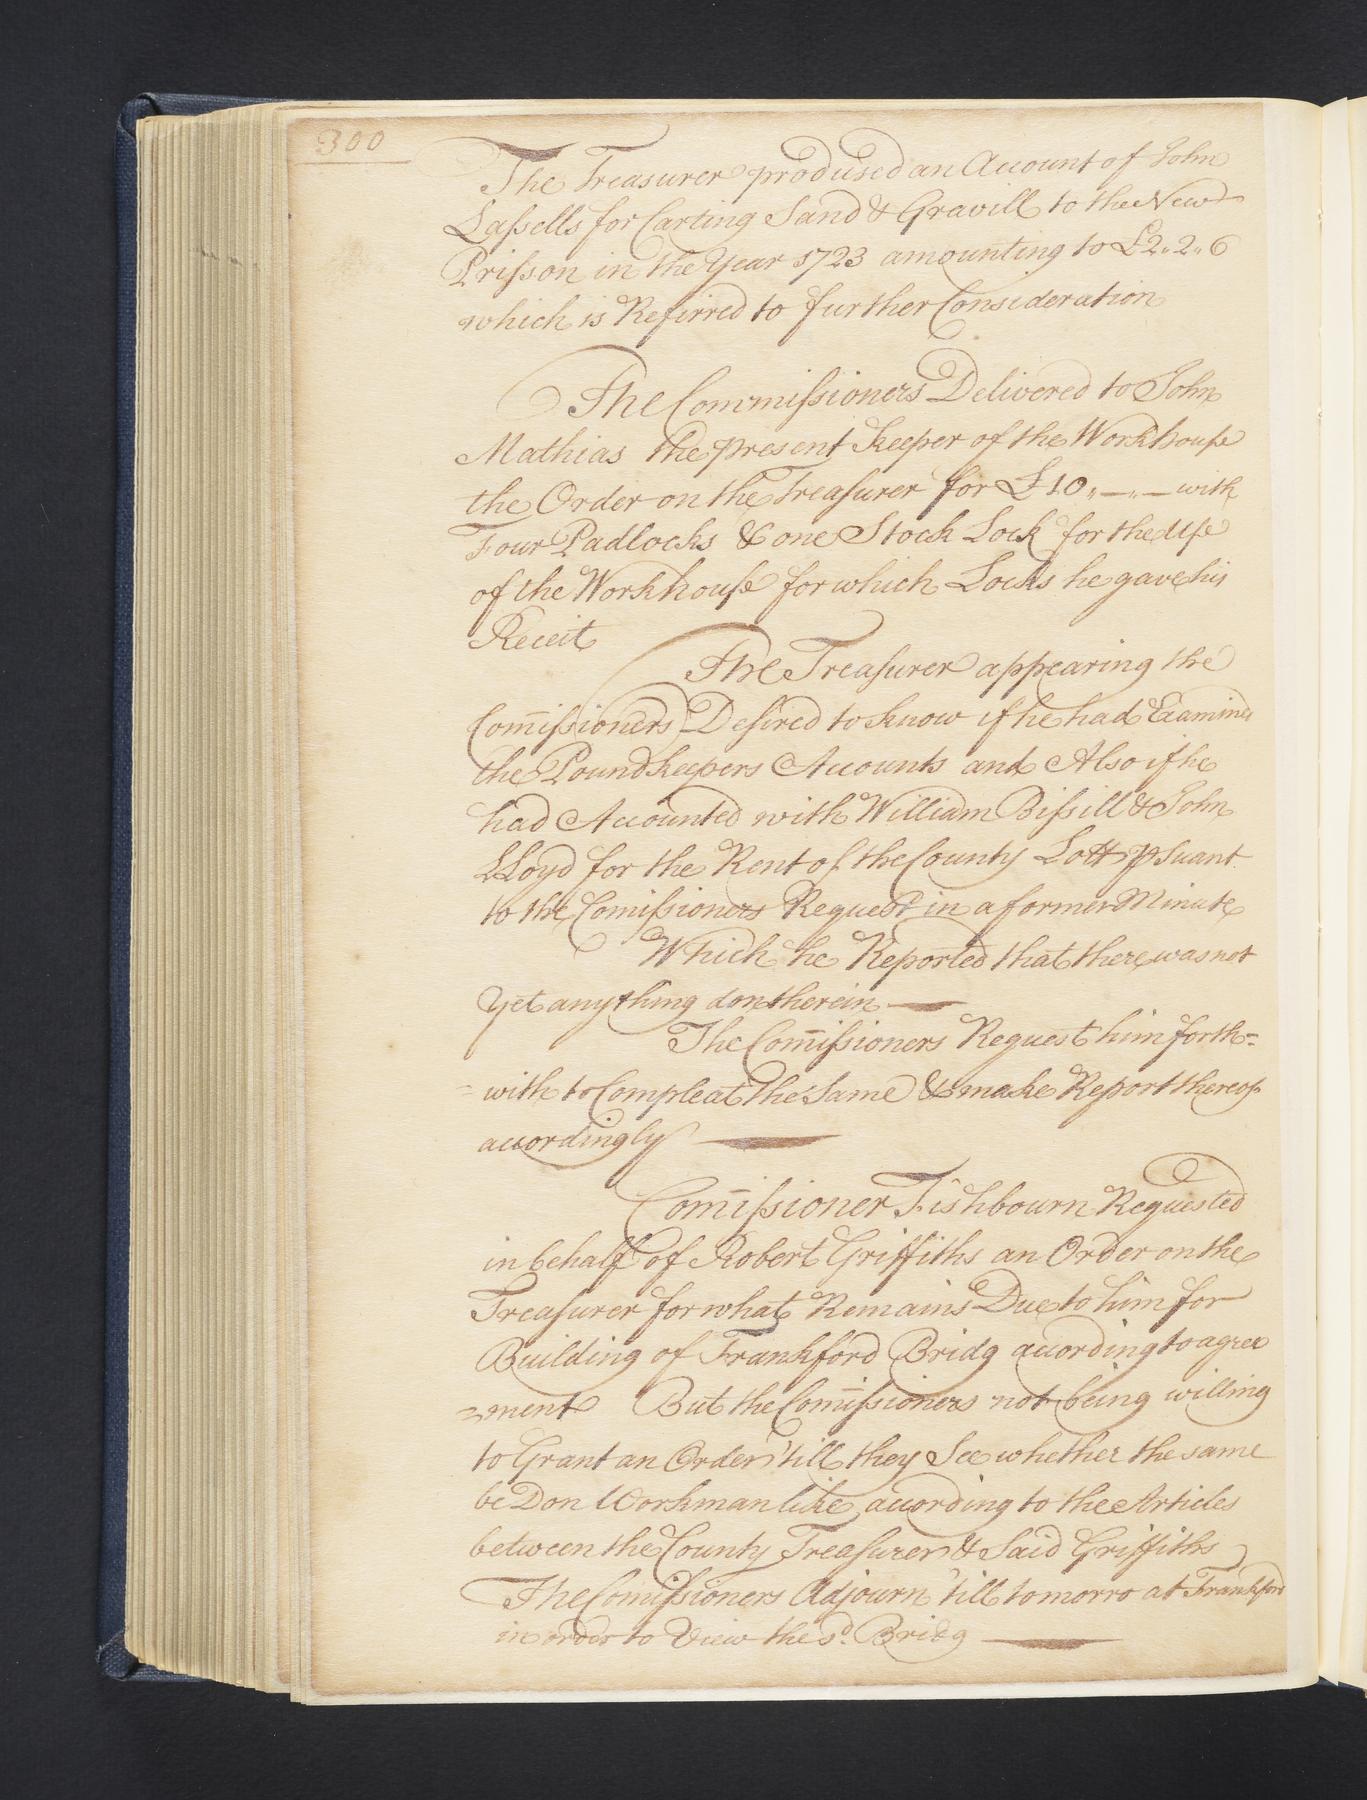 300
The Treasurer prodused an Account of John
Laſsells for Carting Sand & Gravill to the New
Priſson in the Year 1723 amounting to £2„2„6
which is Refirred to further Consideration
The Commiſsioners Delivered to John
Mathias the present Keeper of the Workhouſe
the Order on the Treaſurer for £10„—„— with
Four Padlocks & one Stock Lock for the Uſe
of the Workhouſe for which Locks he gave his
Receit
The Treaſurer appearing the
Com̄iſsioners Deſired to know if he had Examined
the Poundkeepers Accounts and Also if he
had Accounted with William Biſsill & John
LLoyd for the Rent of the County Lott ꝑsuant
to the Comiſsioners Request in a former Minute
Which he Reported that there was not
Yet any thing don therein —
The Com̄iſsioners Request him forth=
=with to Compleat the Same & make Report thereof
accordingly —
Com̄iſsioner Fishbourn Requested
in behalf of Robert Griffiths an Order on the
Treaſurer for what Remains Due to him for
Building of Frankford Bridg acording to agree
=ment But the Com̄iſsioners not being willing
to Grant an Order 'till they See whether the same
be Don Workman like acording to the Articles
between the County Treaſurer & Said Griffiths
The Comiſsioners Adjourn 'till tomorro at Frankford
in order to View the sd. Bridg —